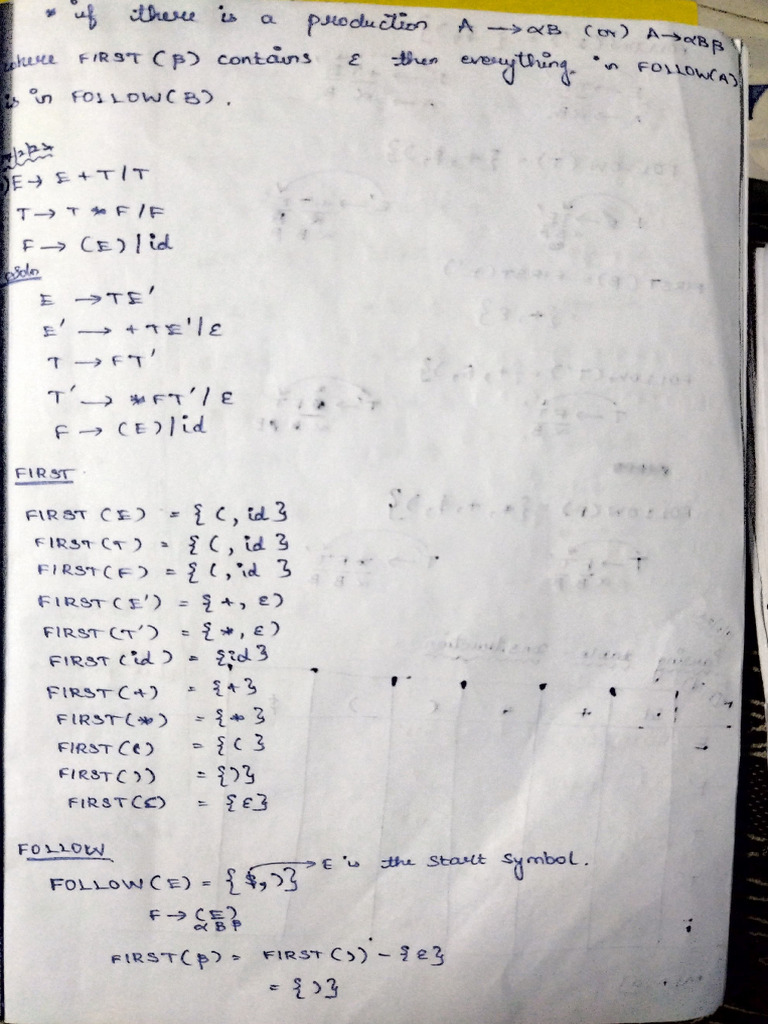 * if there is a production A → αB (or) A → αBβ
where FIRST(β) contains ε then everything in FOLLOW(A)
is in FOLLOW(B).
E → E + T / T
T → T * F / F
F → (E) | id
Soln
E → TE'
E' → +TE' / ε
T → FT'
T' → *FT' / ε
F → (E) | id
FIRST
FIRST (E) = { (, id }
FIRST (T) = { (, id }
FIRST (F) = { (, id }
FIRST (E') = { +, ε )
FIRST (T') = { *, ε )
FIRST (id) = {id}
FIRST (+) = {+}
FIRST (*) = {*}
FIRST (() = { ( }
FIRST ()) = {)}
FIRST (ε) = {ε}
FOLLOW
FOLLOW (E) = { $, )} → E is the start symbol.
F → (E)
α B β
FIRST (β) = FIRST ()) - {ε}
= { ) }